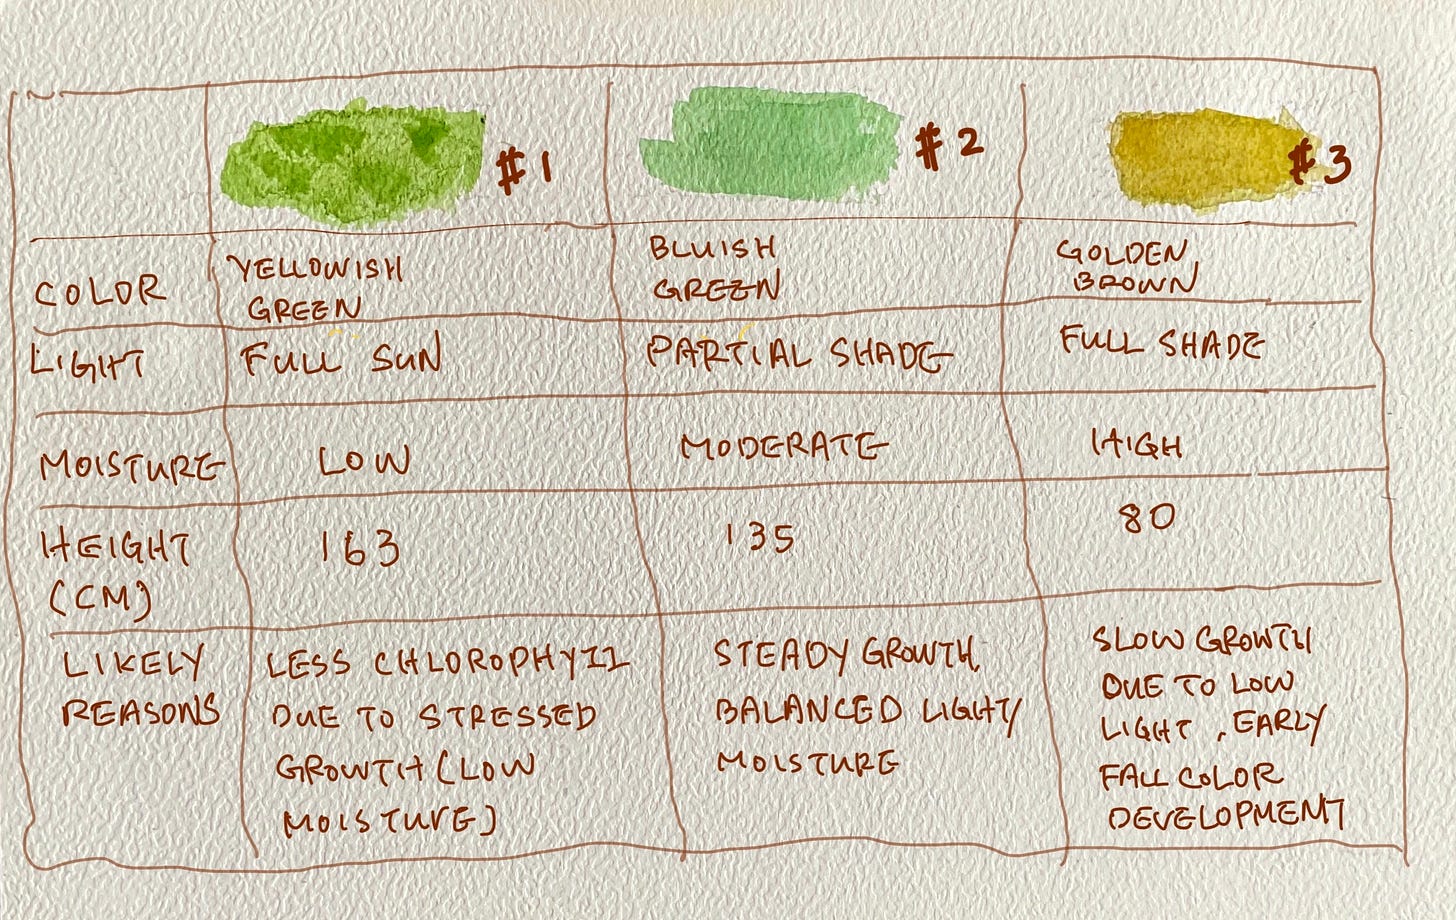 #1
#2
#3
COLOR
YELLOWISH
GREEN
BLUISH
GREEN
GOLDEN
BROWN
LIGHT
FULL SUN
PARTIAL SHADE
FULL SHADE
MOISTURE
LOW
MODERATE
HIGH
HEIGHT
(CM)
163
135
80
LIKELY
REASONS
LESS CHLOROPHYLL
DUE TO STRESSED
GROWTH (LOW
MOISTURE)
STEADY GROWTH,
BALANCED LIGHT/
MOISTURE
SLOW GROWTH
DUE TO LOW
LIGHT, EARLY
FALL COLOR
DEVELOPMENT